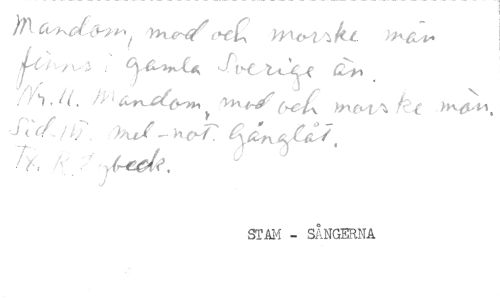 Mandom, mod och morske män
finns i gamla Sverige än.
Nr. 11. Mandom, mod och morske män.
Sid. mel-not. Gånglåt.
Tx. R. Dybeck.
STAM - SÅNGERNA